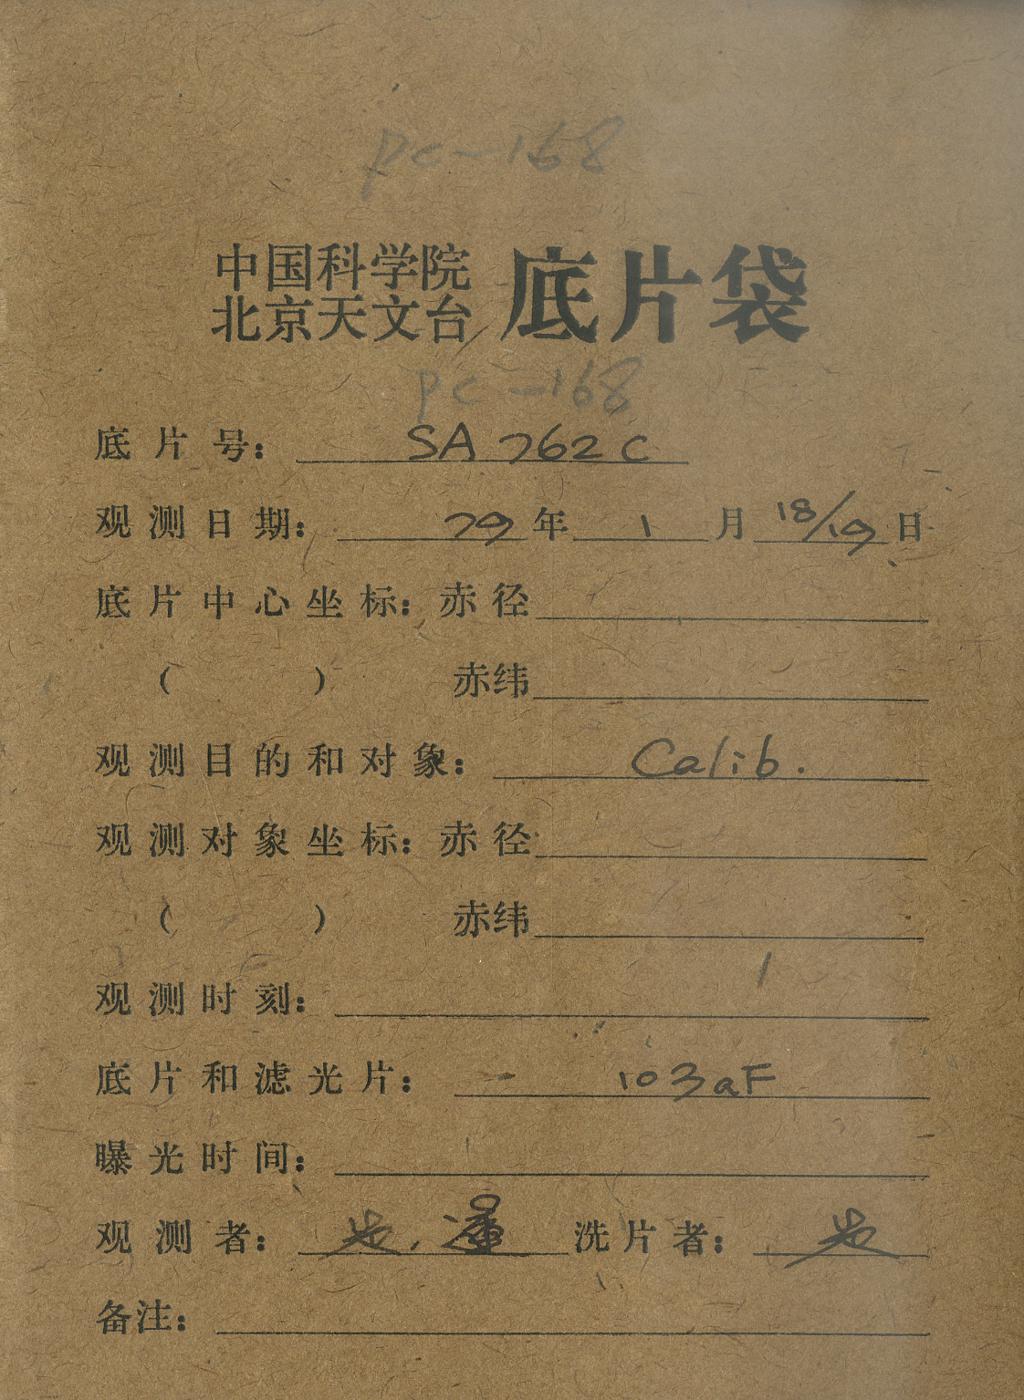 pc-168
中国科学院
北京天文台 底片袋
pc-168
底片号： SA 762 C
观测日期： 79 年 1 月 18/19 日
底片中心坐标：赤径
（ ） 赤纬
观测目的和对象： Calib.
观测对象坐标：赤径
（ ） 赤纬
观测时刻：
底片和滤光片： 103aF
曝光时间：
观测者： 洗片者：
备注：